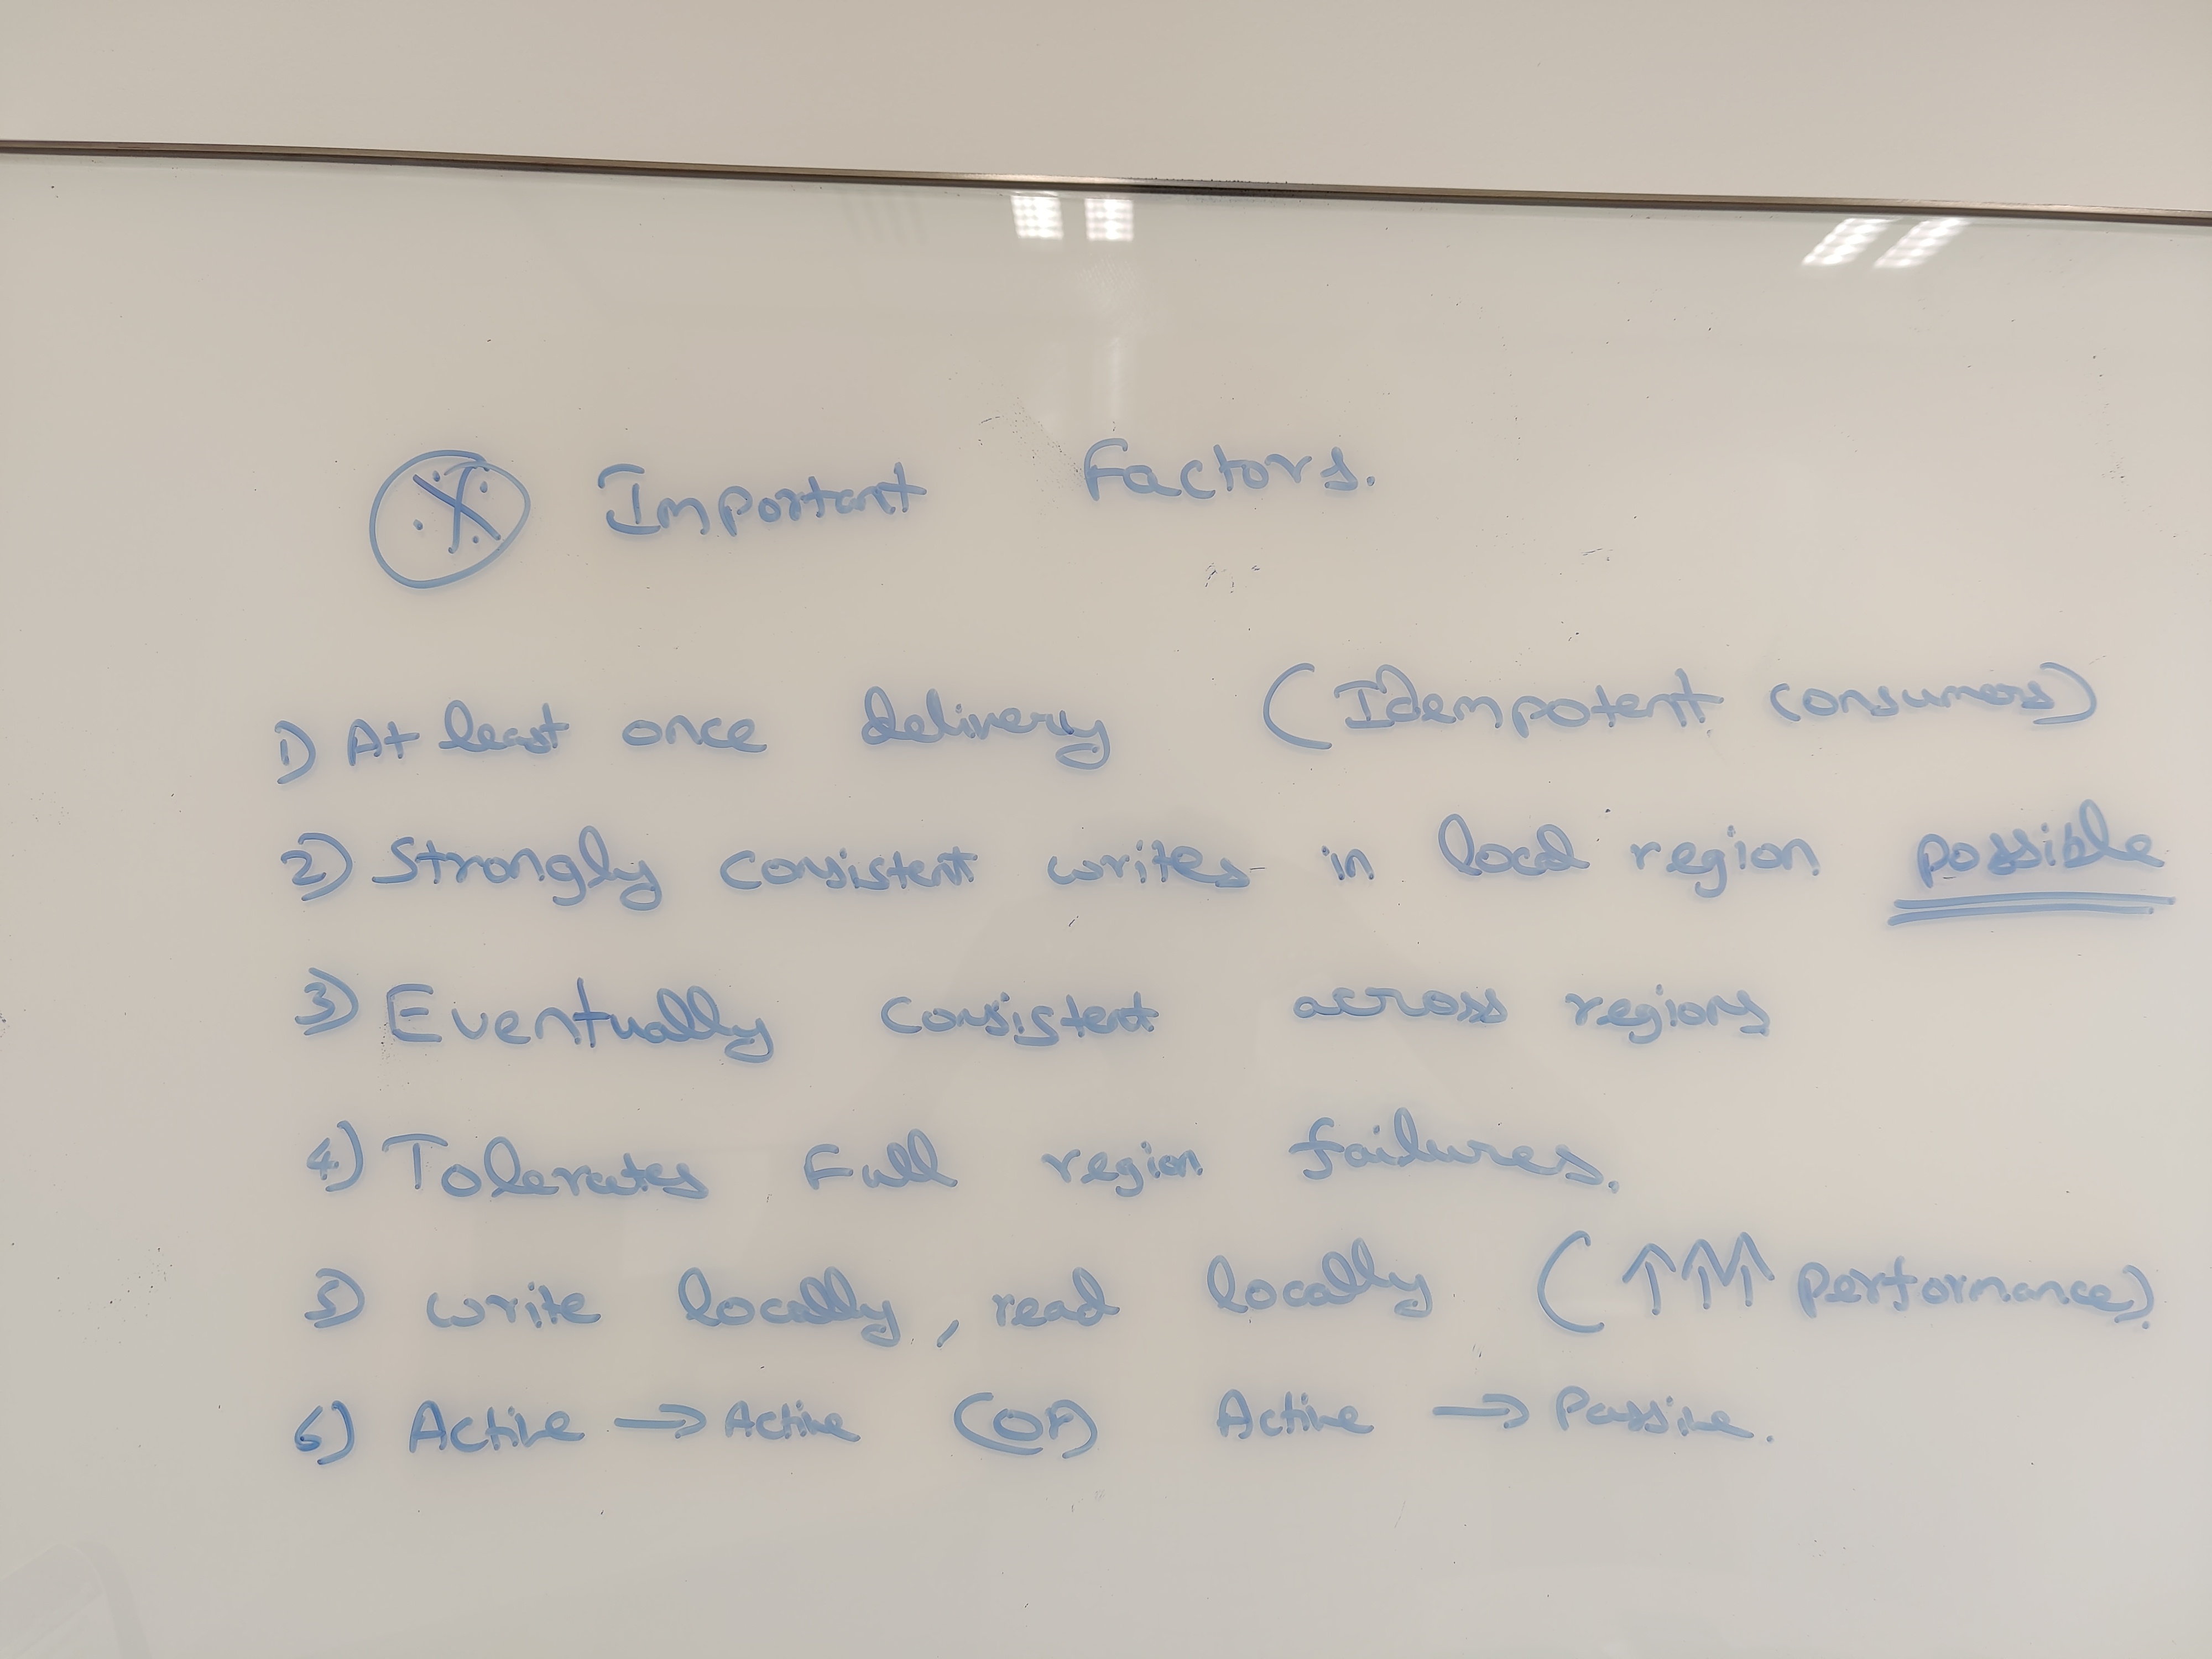 Important Factors.
1) At least once delivery (Idempotent consumers)
2) Strongly consistent writes in local region possible
3) Eventually consistent across regions
4) Tolerates Full region failures.
5) write locally, read locally (↑↑↑ performance).
6) Active → Active (OR) Active → Passive.